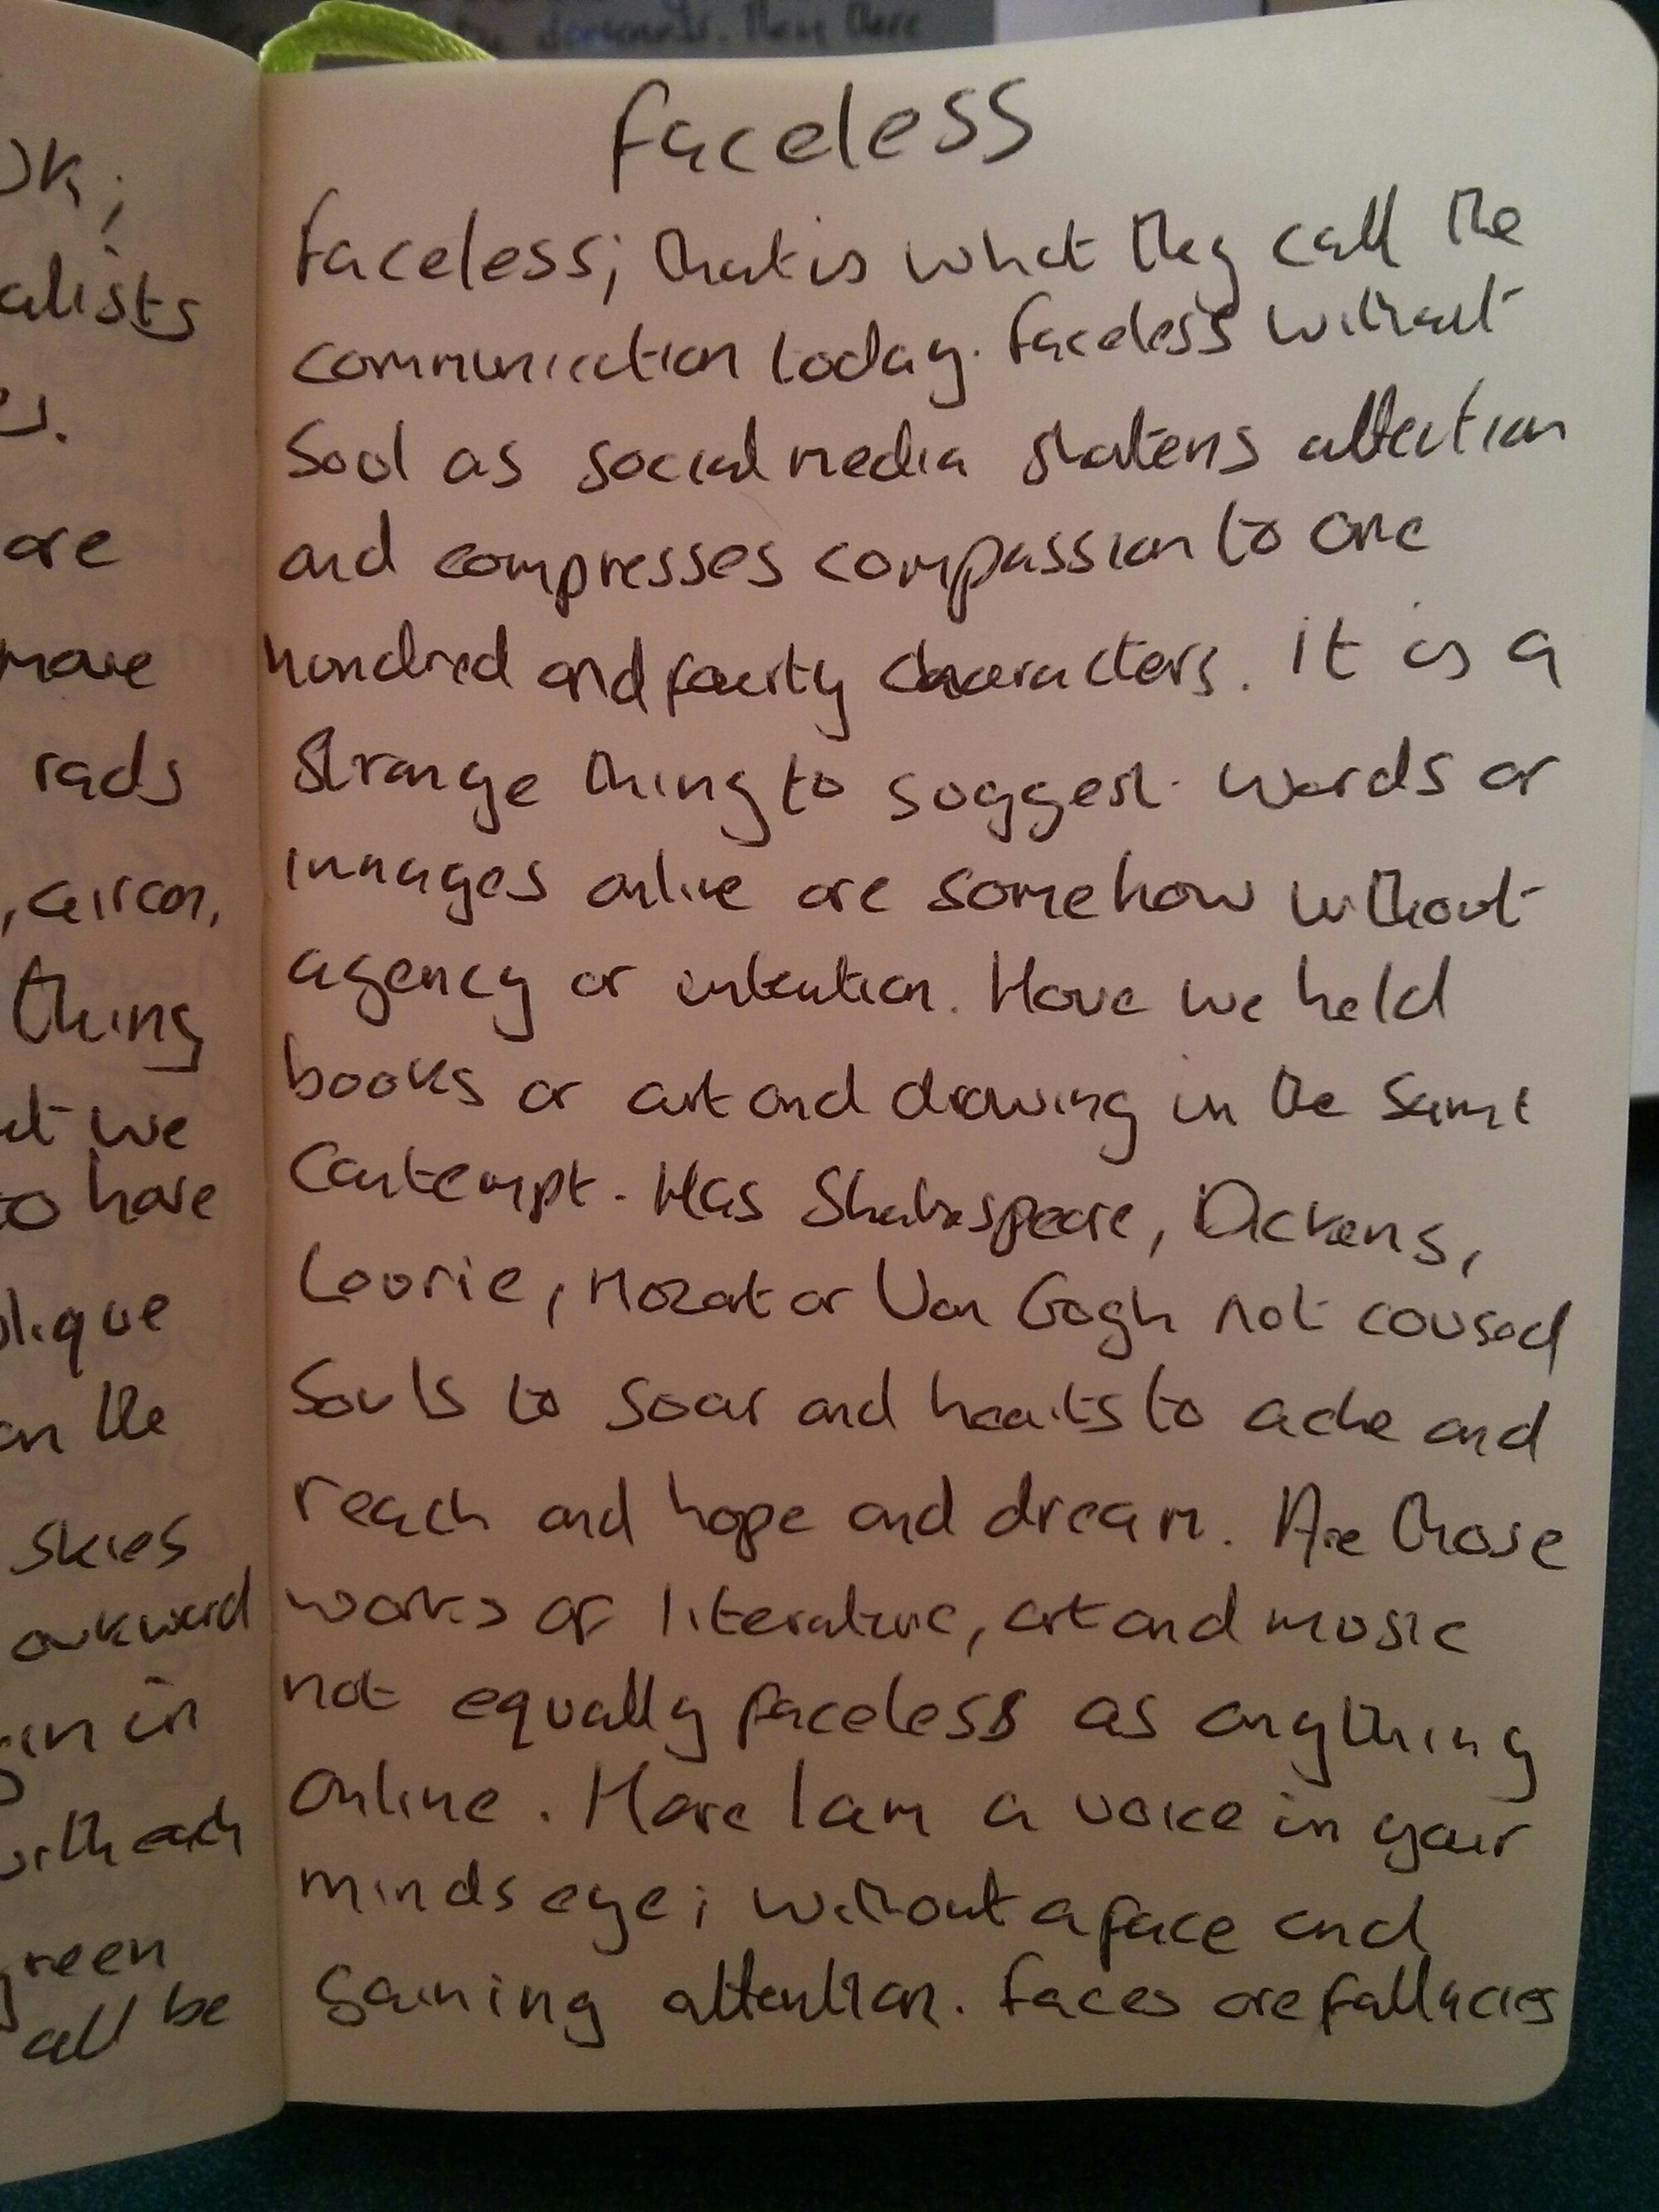 OK;
alists
s.
are
more
rads
, aircon,
thing
ut we
to have
lique
on the
skies
awkward
in in
with each
green
all be
faceless
faceless; that is what they call the
communication today. faceless without
Soul as social media shatters attention
and compresses compassion to one
hundred and fourty characters. it is a
Strange thing to suggest. words or
images online are somehow without
agency or intention. Have we held
books or art and drawing in the same
Contempt. Has Shakespeare, Dickens,
Lowrie, Mozart or Van Gogh not caused
Souls to soar and hearts to ache and
reach and hope and dream. Are those
works of literature, art and music
not equally faceless as anything
Online. Here I am a voice in your
minds eye; without a face and
Gaining attention. faces are fallacies